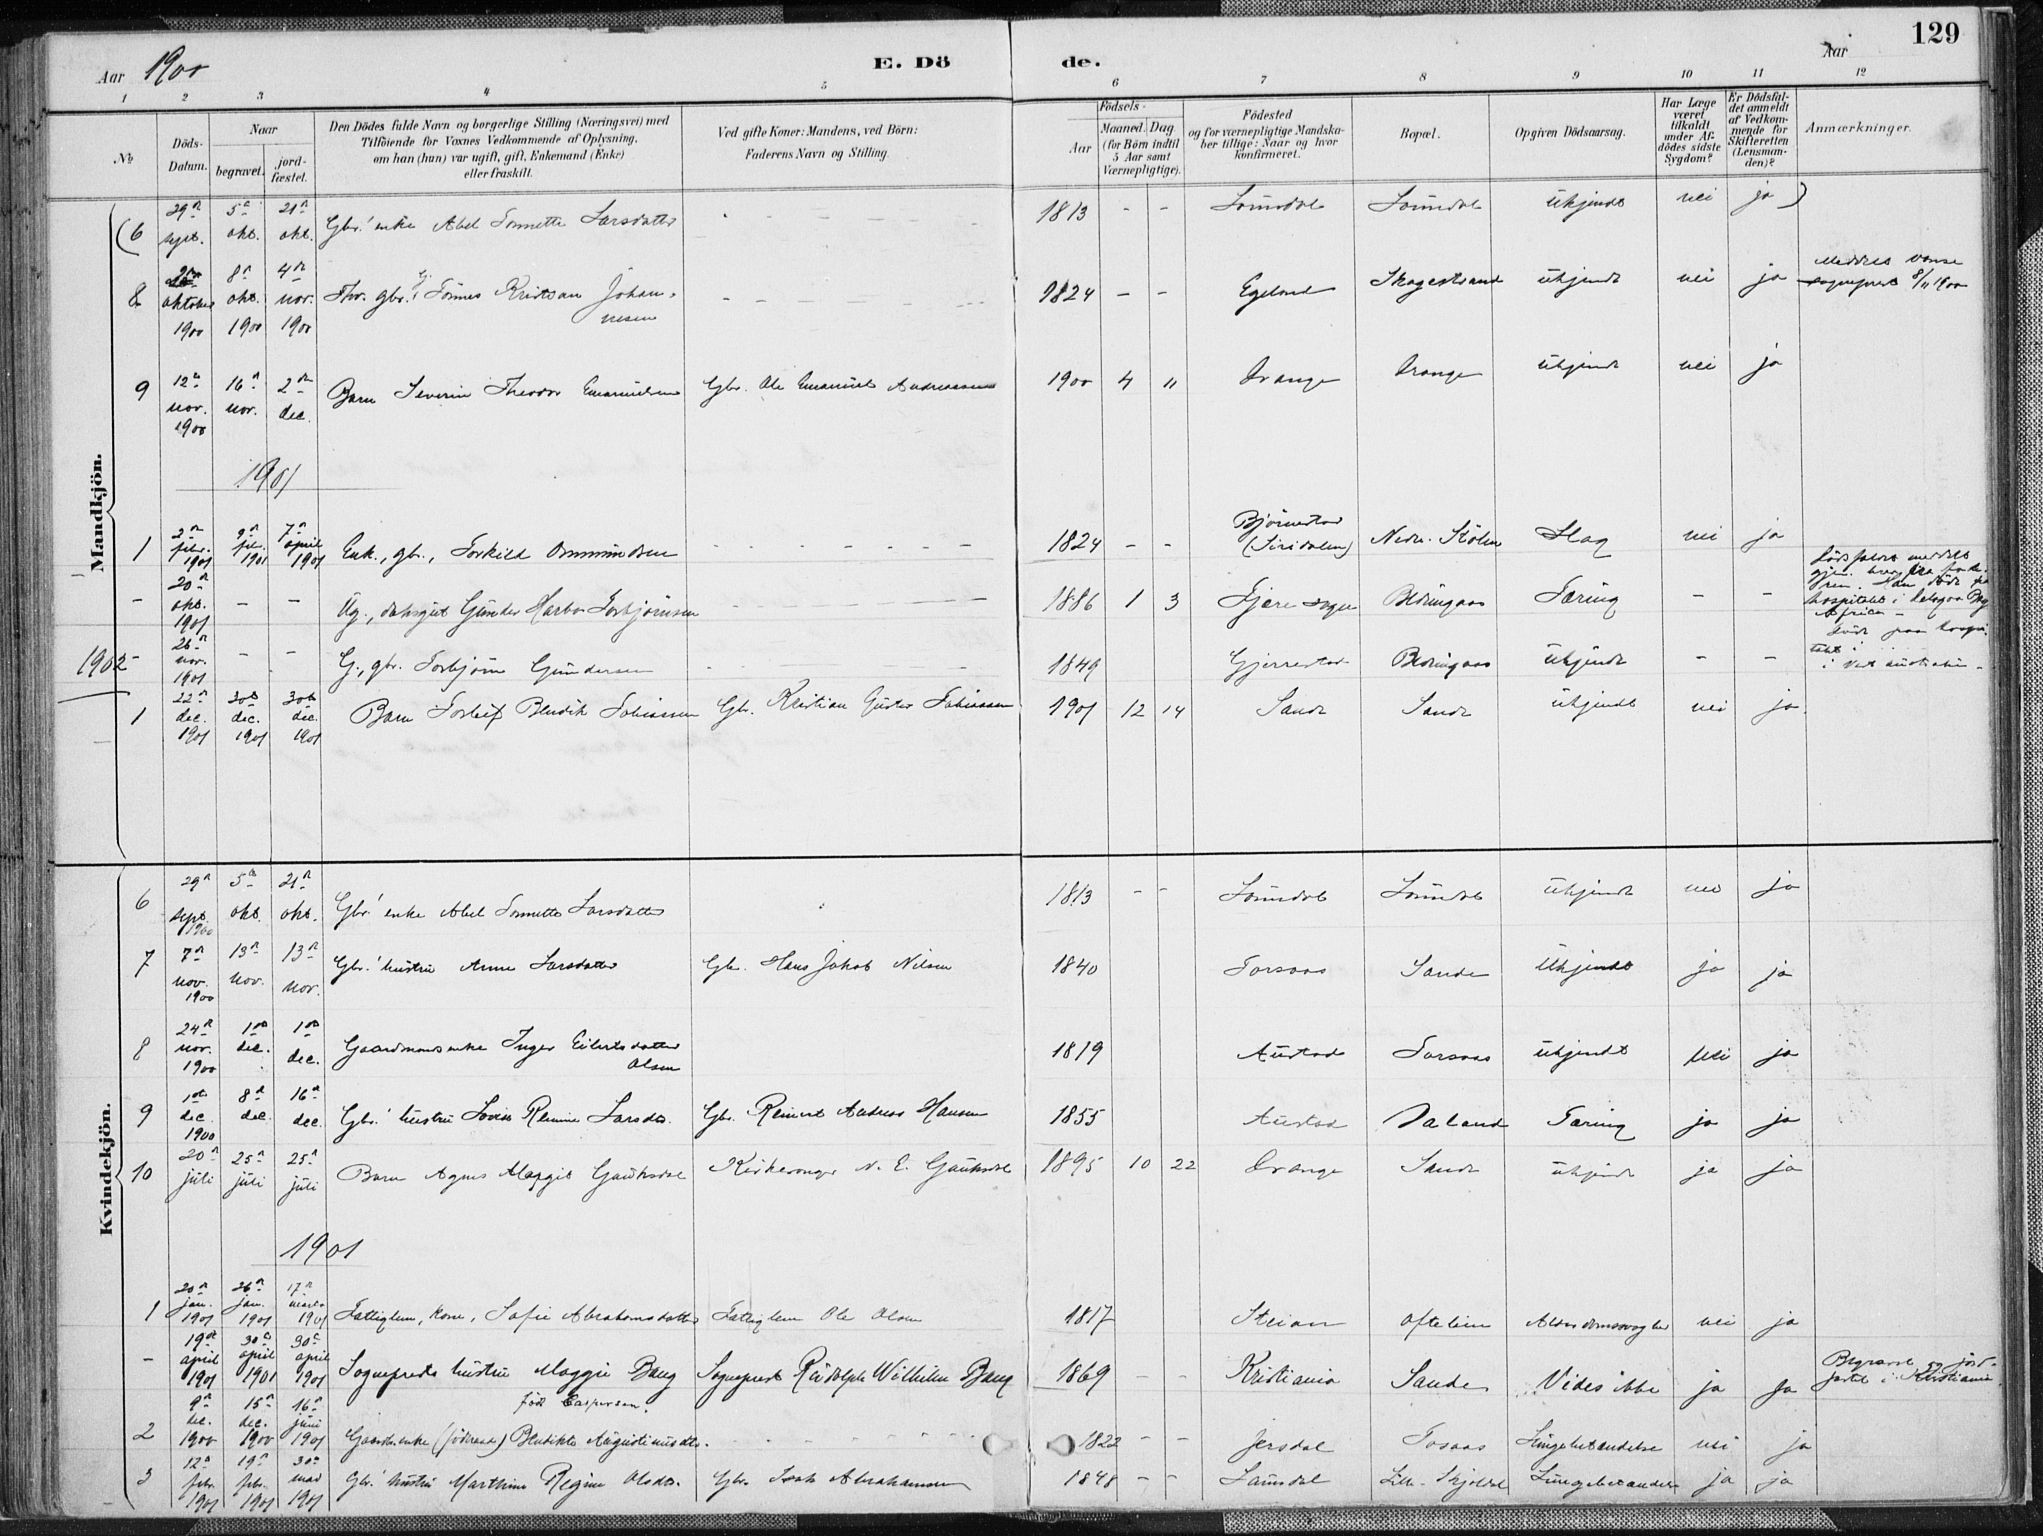 129
Aar 1900
E. Dö de.
Aar
1 2 3 4 5 6 7 8 9 10 11 12
№
Döds-Datum.
Naar
begravet.
jord-fæstet.
Den Dödes fulde Navn og borgerlige Stilling (Næringsvei) med
Tilföiende for Voxnes Vedkommende af Oplysning,
om han (hun) var ugift, gift, Enkemand (Enke)
eller fraskilt.
Ved gifte Koner: Mandens, ved Börn:
Faderens Navn og Stilling.
Födsels-
Aar
Maaned. Dag
(for Börn indtil
5 Aar samt
Værnepligtige).
Födested
og for værnepligtige Mandska-
ber tillige: Naar og hvor
konfirmeret.
Bopæl.
Opgiven Dödsaarsag.
Har Læge
været
tilkaldt
under Af-
dödes sidste
Sygdom?
Er Dödsfal-
det anmeldt
af Vedkom-
mende for
Skifteretten
(Lensman-
den)?
Anmærkninger.
Mandkjön.
(6 29n sept. 5n okt. 21n okt. Gbr.' enke Abel Tonnette Larsdatter - - 1813 - - ukjendt nei ja )
8 oktober 1900 8n okt. 1900 4de nov. 1900 gbr. Tönnes Kristian Johannesen - - 1824 - - Egeland Skagestrand ukjendt nei ja Meddelt Vanse sogneprest 8/11 1900
9 12n nov. 1900 16n nov. 2den dec. Barn Severin Theodor Emanuelsen Gbr. Ole Emanuel Andreassen 1900 4 11 Drange Drange ukjendt nei ja
1901
1 2den febr. 1901 9n febr. 1901 7n april 1901 Enk., gbr., Torkild Ommundsen - - 1824 - - Björnestad (Sirdalen) Nedre Stölen Slag nei ja
- 20n okt. 1901 - - Ug., Gunder Torbjörnsen - - 1886 1 3 Fjære sogn Tæring - - hospitalet i Delagoa Bay Africa -
1902 - 26n nov. 1901 - - G., gbr. Torbjörn Gundersen - - 1849 Gjerrestad ukjendt - - Död paa hospitalet i Vest Australien -
1 22n dec. 1901 30te dec. 1901 30te dec. 1901 Barn Torleif Bendik Tobiassen Gbr. Kristian Gustav Tobiassen 1901 12 14 Sande Sande ukjendt nei ja
Kvindekjön.
6 29n sept. 1900 5te okt. 21n okt. Gbr.' enke Abel Tonnette Larsdatter 1813 - - ukjendt nei ja
7 7n nov. 1900 13n nov. 13n nov. Gbr.' hustru Anne Larsdatter Gbr. Hans Jakob Nilsen 1840 Torsaas Sande Ukjendt ja ja
8 24n nov. 1900 1ste dec. 1ste dec. Gaardmandsenke Inger Eilertsdatter Olsen 1819 Austad Torsaas ukjendt Nei ja
9 1ste dec. 1900 8n dec. 16n dec. Gbr.' hustru Lovise Larsdtr. Gbr. Reinert Andreas Hansen 1855 Austad Daland Tæring ja ja
10 20n juli 25n juli 25n juli Barn Agnes Margit Gauksdal Kirkesanger N. E. Gauksdal 1895 10 22 Drange Sande ukjendt ja ja
1901
1 20n jan. 1901 26n jan. 1901 17n marts 1901 Fattiglem, kone, Sofie Abrahamsdatter Fattiglem Ole Olsen 1817 Steian Oftebro Alderdomssvaghed nei ja
- 19de april 1901 30te april 1901 30te april 1901 Sogneprests hustru Maggie Bang född Caspersen. Sogneprest Rudolph Wilhelm Bang 1869 - - Kristiania Sande Vides ikke ja ja Begravet og jordfæstet i Kristiania
2 9n dec. 1900 15n dec. 1900 16n juni 1901 Gaardm.enke (föderaad) Bendikte Augustinusdtr. - - 1822 - - Jersdal Tosaas Lungebetændelse nei ja
3 12n febr. 1901 19n febr. 1901 1901 Gbr.' hustru Marthine Regine Olsdtr. Gbr. Isak Abrahamsen 1848 - - Lille Skjoldal Lungebetændelse ja ja